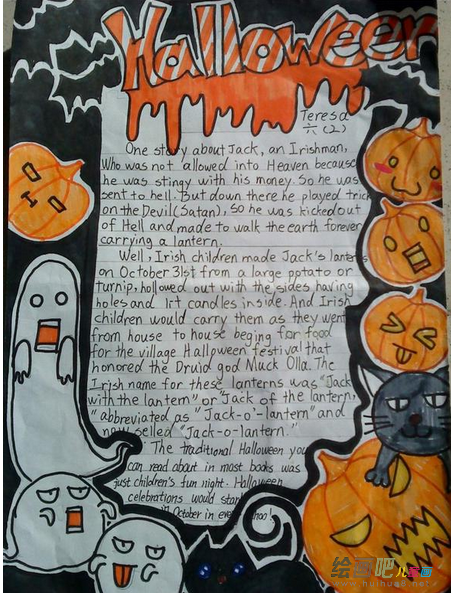 Halloween
Teresa
六(2)
One story about Jack, an Irishman,
Who was not allowed into Heaven because
he was stingy with his money. So he was
sent to hell. But down there he played trick
on the Devil(Satan), so he was kicked out
of Hell and made to walk the earth forever
carrying a lantern.
Well, Irish children made Jack's lanterns
on October 31st from a large pptato or
turnip, hollowed out with the sides having
holes and lit candles inside. And Irish
children would carry them as they went
from house to house beging for food
for the village Halloween festival that
honored the Druid god Muck Olla. The
Irish name for these lanterns was "Jack
with the lantern" or "Jack of the lantern,
"abbreviated as "Jack-o'-lantern" and
now selled "Jack-o-lantern."
The traditional Halloween you
can read about in most books was
just children's fun night. Halloween
celebrations would start
in October in every
绘画吧 儿童画
www.huihua8.net